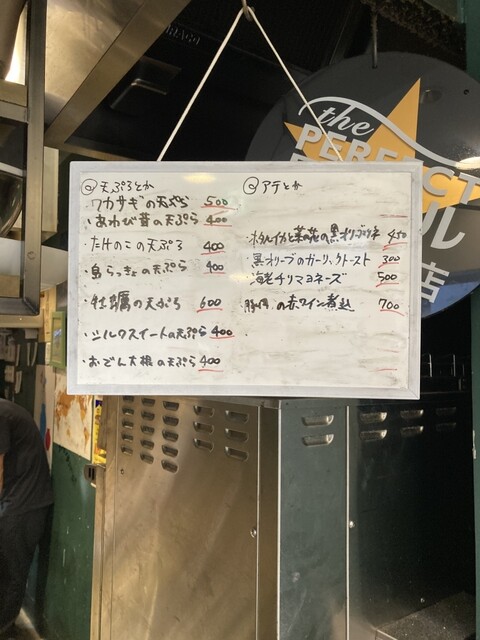 @天ぷらとか
・ワカサギの天ぷら 500
・あわび茸の天ぷら 400
・たけのこの天ぷら 400
・島らっきょの天ぷら 400
・牡蠣の天ぷら 600
・シルクスイートの天ぷら 400
・おでん大根の天ぷら 400
@アテとか
・ホタルイカと菜の花の黒オリーブソース 450
・黒オリーブのガーリックトースト 300
・海老チリマヨネーズ 500
・豚肉の赤ワイン煮込 700
the
PERFECT
ル
店